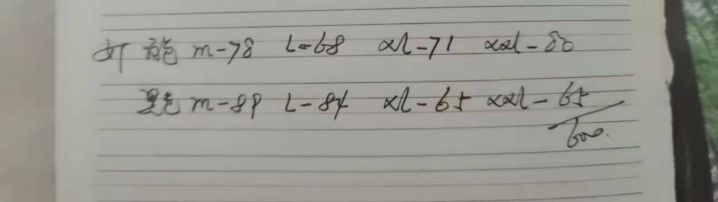 m-78 L-68 xl-71 xxl-80
黑色 m-89 L-84 xl-65 xxl-65
600.